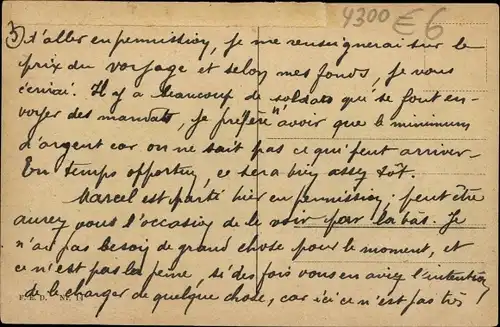 4300 E 6
3) d'aller en permission, je me renseignerai sur le
prix du voyage et selon mes fonds, je vous
écrirai. Il y a beaucoup de soldats qui se font en-
voyer des mandats, je préfère n'avoir que le minimum
d'argent car on ne sait pas ce qui peut arriver.
En temps opportun, ce sera bien assez tôt.
Marcel est parti hier en permission; peut être
aurez vous l'occasion de le voir par là bas. Je
n'ai pas besoin de grand chose pour le moment, et
ce n'est pas la peine, si des fois vous en aviez l'intention
de le charger de quelque chose, car ici ce n'est pas très